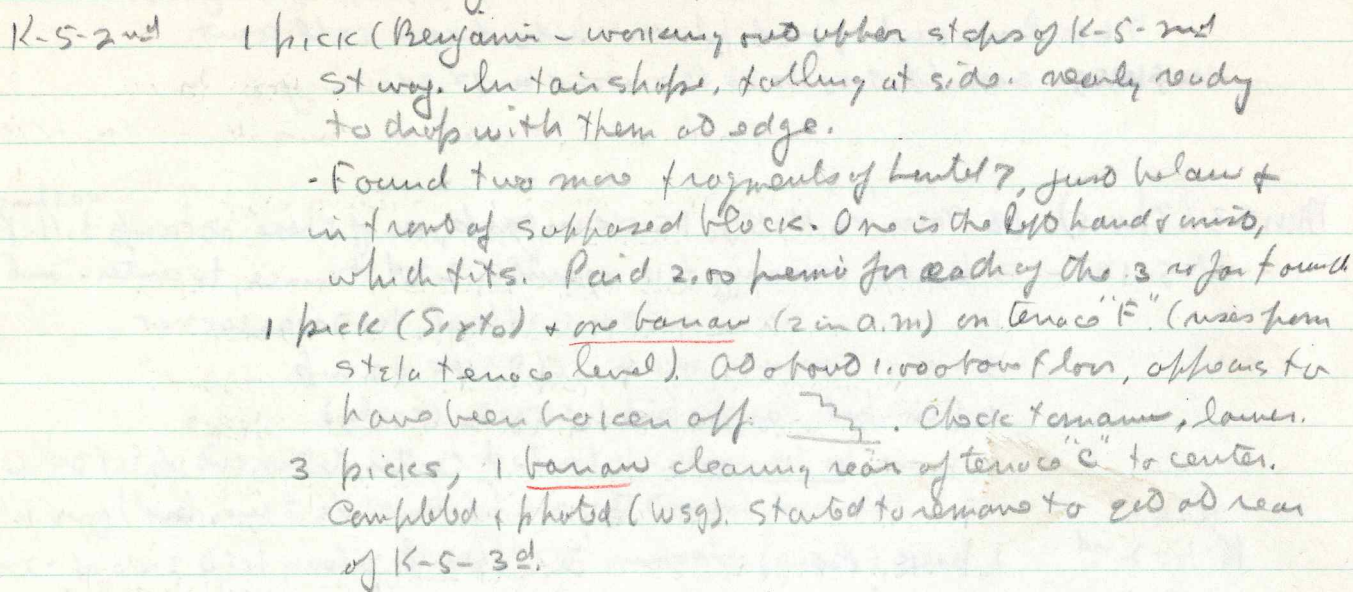 K-5-2nd 1 pick (Benjamin - working out upper steps of K-5-2nd
stway. In fair shape, falling at side. nearly ready
to drop with them at edge.
- Found two more fragments of Lintel 7, just below &
in front of supposed block. One is the left hand & wrist,
which fits. Paid 2.00 premio for each of the 3 so far found
1 pick (Sixto) & one barrow (2 in a.m) on terrace "F" (rises from
stela terrace level). At about 1.00 above floor, appears to
have been broken off. . Check to remove, lower.
3 picks, 1 barrow clearing rear of terrace "C" to center.
Completed & photed (WSG). Started to remove to get at rear
of K-5-3d.